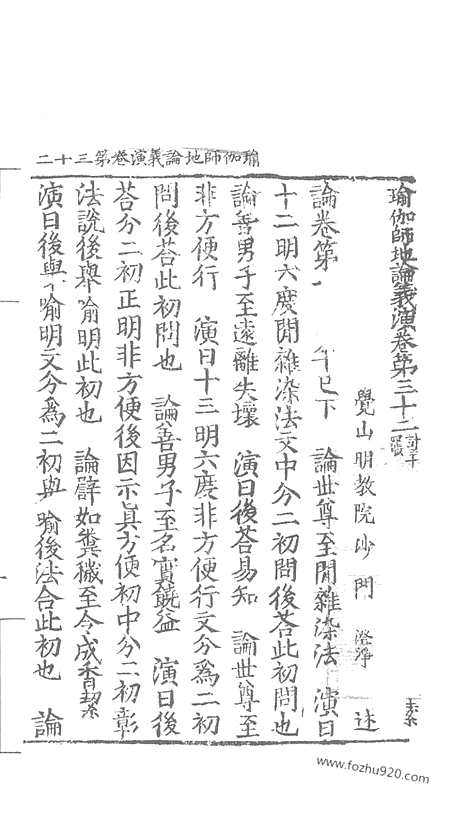 瑜伽師地論義演卷第三十二
瑜伽師地論義演卷第三十二
覺山明教院沙門 澄淨 述
論卷第 下 論世尊至間雜染法 演曰
十二明六度間雜染法文中分二初問後荅此初問也
論善男子至遠離失壞 演曰後荅易知 論世尊至
非方便行 演曰十三明六度非方便行文分爲二初
問後荅此初問也 論善男子至名實饒益 演曰後
荅分二初正明非方便後因示真方便初中分二初彰
法說後舉喻明此初也 論譬如糞穢至令成香潔
演曰後舉喻明文分爲二初舉喻後法合此初也 論
www.fozhu920.com